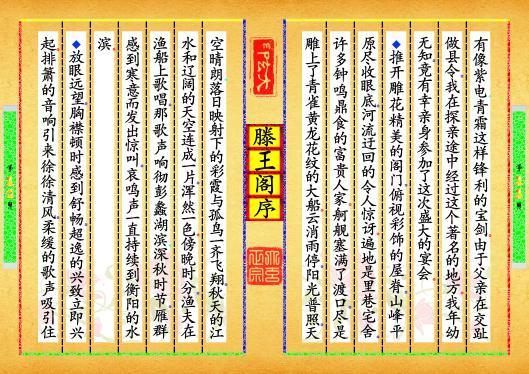 有像紫电青霜这样锋利的宝剑由于父亲在交趾
做县令我在探亲途中经过这个著名的地方我年幼
无知竟有幸亲身参加了这次盛大的宴会
◆推开雕花精美的阁门俯视彩饰的屋脊山峰平
原尽收眼底河流迂回的令人惊讶遍地是里巷宅舍
许多钟鸣鼎食的富贵人家舸舰塞满了渡口尽是
雕上了青雀黄龙花纹的大船云消雨停阳光普照天
滕王阁序
空晴朗落日映射下的彩霞与孤鸟一齐飞翔秋天的江
水和辽阔的天空连成一片浑然一色傍晚时分渔夫在
渔船上歌唱那歌声响彻彭蠡湖滨深秋时节雁群
感到寒意而发出惊叫哀鸣声一直持续到衡阳的水
滨
◆放眼远望胸襟顿时感到舒畅超逸的兴致立即兴
起排箫的音响引来徐徐清风柔缓的歌声吸引住